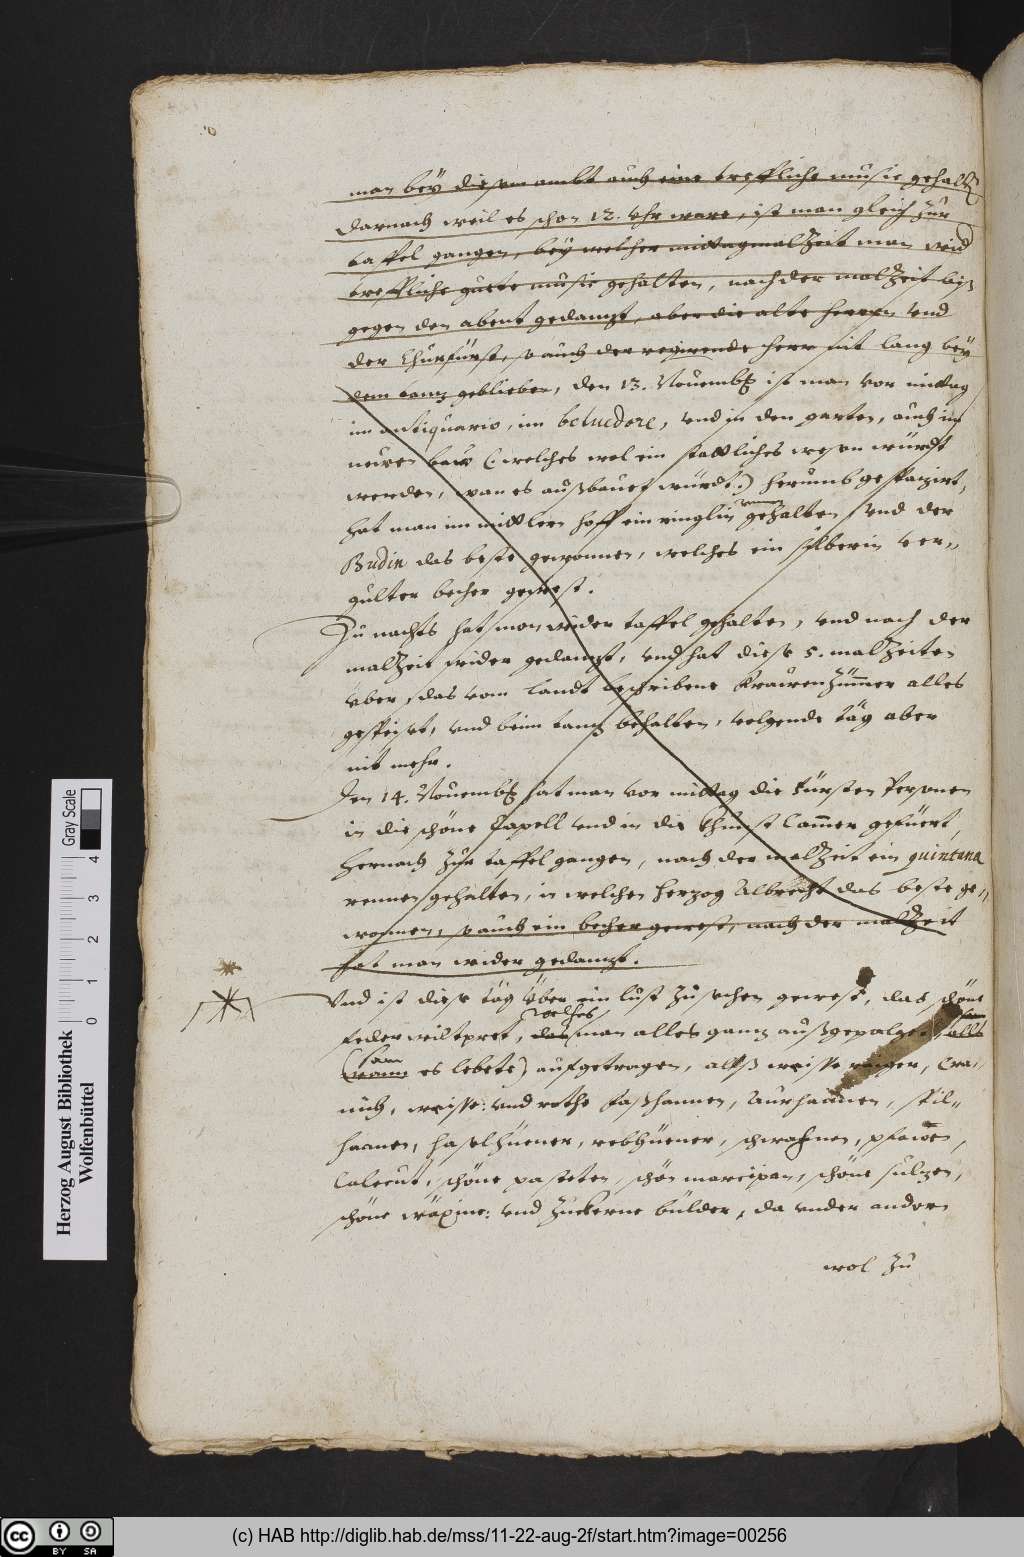 man beÿ diesem ambt auch eine treffliche music gehalt͞
Darnach weil es schon 12. Vhr ware, ist man gleich zur
taffel gangen, beÿ welcher mittagmalzeit man wid͞
treffliche guete music gehalten, nach der malzeit biß
gegen den abent gedantzt, aber die alte herren vnd
der Churfürst, so auch der regirende herr nit lang beÿ
dem tantz gebliben, den 13. Nouemb͞ ist man vor mittag
im antiquario, im beluedore, vnd in den garten, auch im
neuen baw (: welches wol ein stattliches wesen würdt
werden, wan es außbauet würdt:) herumb gespazirt,
hat man im mittlern hoff ein ringlin rennen gehalten vnd der
Budin das beste gewonnen, welches ein silberin ver„
gulter becher gewest.
Zu nachts hat man wider taffel gehalten, vnd nach der
malzeit wider gedantzt, vnd hat diese 5. malzeiten
vber, das vom landt beschribene Frauenzümmer alles
gespeiset, vnd beim tantz behalten, volgende täg aber
nit mehr.
Den 14. Nouemb͞ hat man vor mittag die Fürsten Personen
in die schöne Capell vnd in die Chunst Cam̄er gefüert,
hernach zur taffel gangen, nach der malzeit ein quintana
rennen gehalten, in welchen herzog Albrecht das beste ge„
wonnen, so auch ein becher gewest, nach der malzeit
hat man wider gedantzt.
Vnd ist diese täg vber ein lust zu sehen gewest, das schöne
federwiltpret, das welches man alles gantz außgepalget, allß
(wann sam es lebete) aufgetragen, allß weisse raiger, Cra„
nich, weisse: vnd rothe faßhannen, Aurhaanen, spil„
haanen, haselhüener, rebhüener, schwahnen, pfawen,
Calecut, schöne pasteten, schön marcipan, schöne sulzen,
schöne wäxine: vnd zuckerne bülder, da vnder andern
wol zu
Herzog August Bibliothek
Wolfenbüttel
Gray Scale
0 1 2 3 4
(c) HAB http://diglib.hab.de/mss/11-22-aug-2f/start.htm?image=00256
cc BY SA